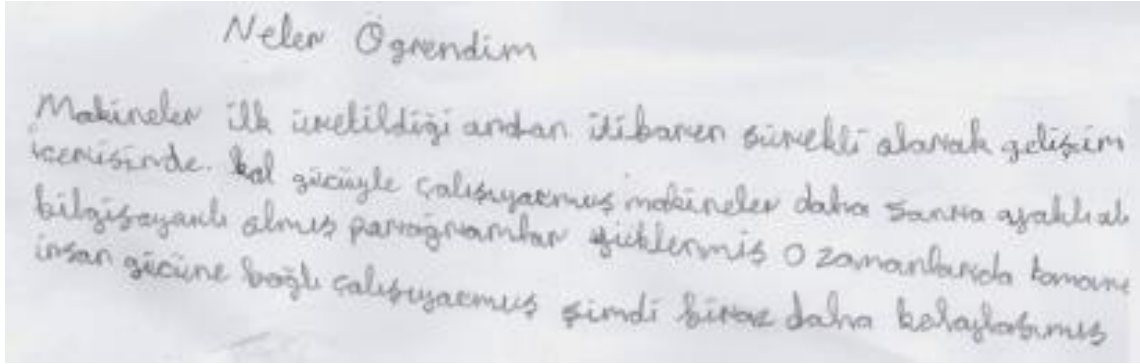 Neler Ögrendim
Makineler ilk üretildiği andan itibaren sürekli olarak gelişim
içerisinde. kol gücüyle çalışıyormuş makineler daha sonra ayaklı
bilgisayarlı olmuş parogramlar yüklenmiş O zamanlarıda tamame
insan gücüne bağlı çalışıyormuş şimdi biraz daha kolaylaşımış